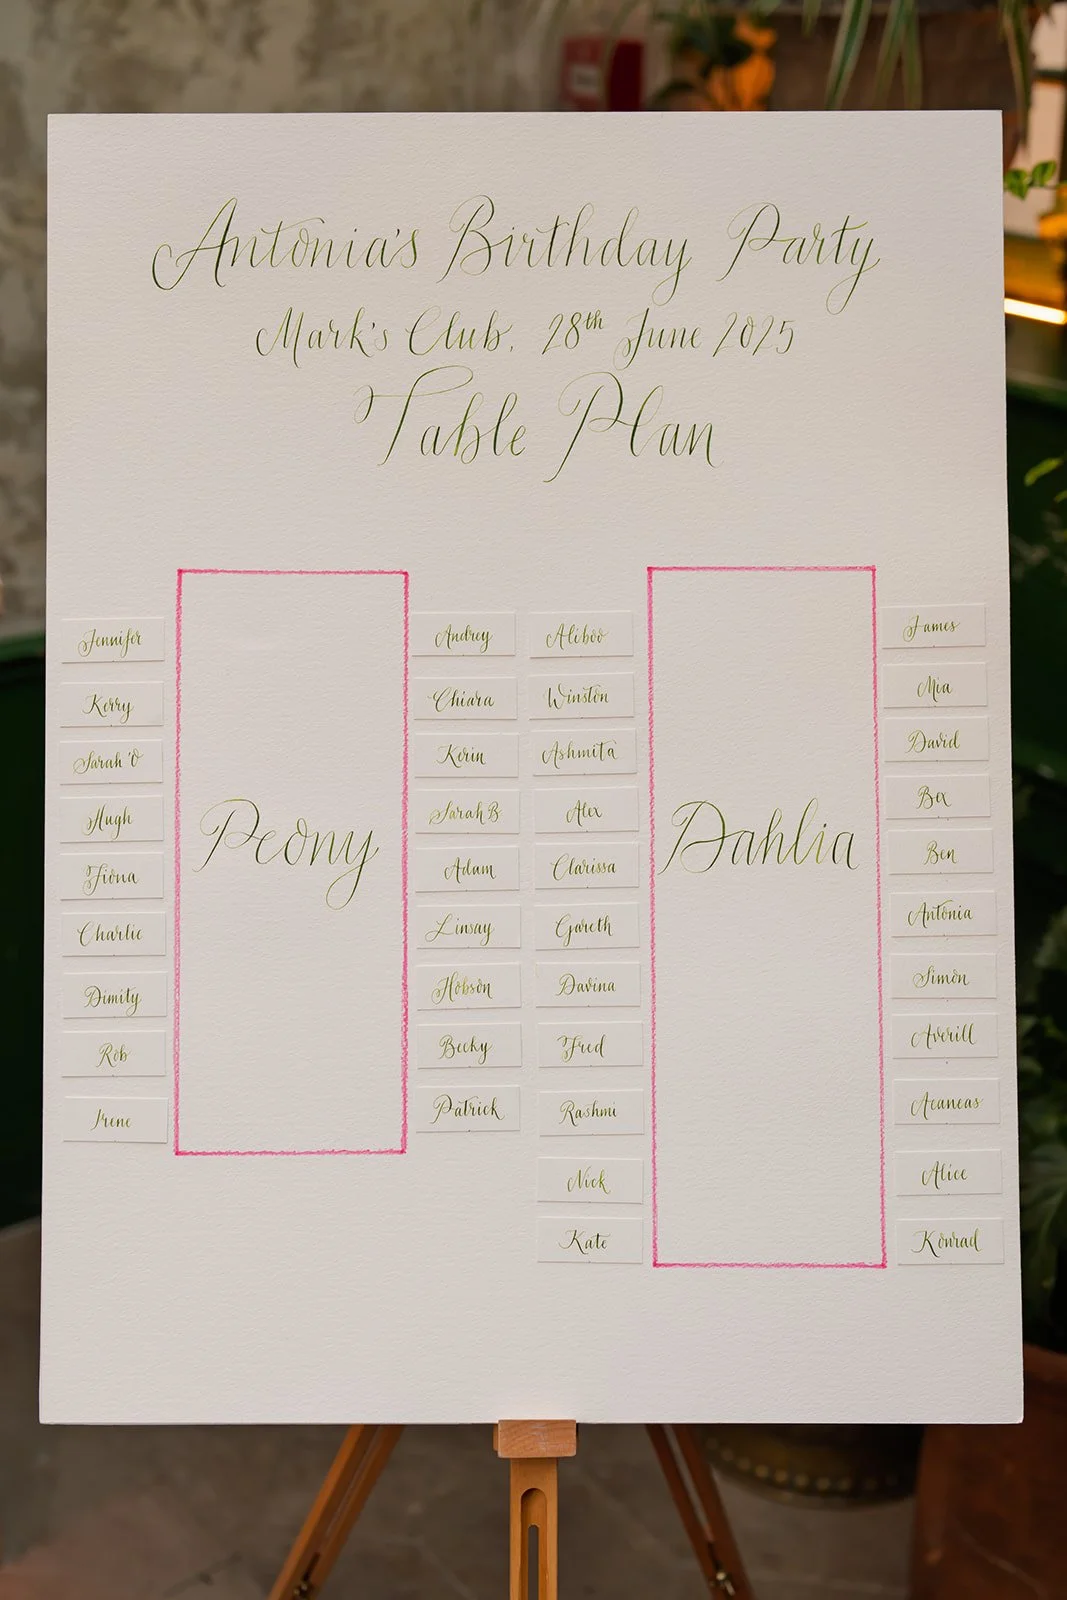 Antonia's Birthday Party
Mark's Club, 28th June 2025
Table Plan
Peony
Jennifer
Kerry
Sarah 'O
Hugh
Fiona
Charlie
Dimity
Rob
Irene
Andrey
Chiara
Kerin
Sarah B
Adam
Linsay
Hobson
Becky
Patrick
Dahlia
Aliboo
Winston
Ashmita
Alex
Clarissa
Gareth
Davina
Fred
Rashmi
Nick
Kate
James
Mia
David
Bex
Ben
Antonia
Simon
Averill
Aeaneas
Alice
Konrad